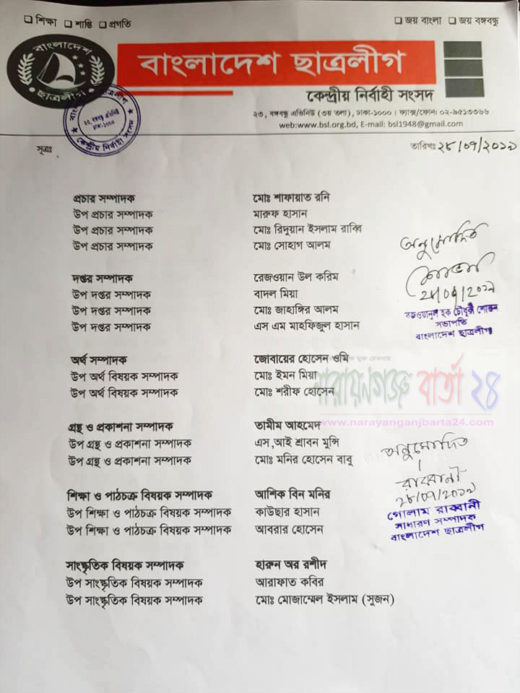 □ শিক্ষা □ শান্তি □ প্রগতি
□ জয় বাংলা □ জয় বঙ্গবন্ধু
বাংলাদেশ
ছাত্রলীগ
বাংলাদেশ ছাত্রলীগ
কেন্দ্রীয় নির্বাহী সংসদ
২৩, বঙ্গবন্ধু এভিনিউ (৩য় তলা), ঢাকা-১০০০। ফ্যাক্স/ফোন: ০২-৯৫১৩৩৬৬
web:www.bsl.org.bd, E-mail: bsl1948@gmail.com
সূত্রঃ
তারিখঃ ২৮/০৭/২০১৯
প্রচার সম্পাদক মোঃ শাফায়াত রনি
উপ প্রচার সম্পাদক মারুফ হাসান
উপ প্রচার সম্পাদক মোঃ রিদুয়ান ইসলাম রাব্বি
উপ প্রচার সম্পাদক মোঃ সোহাগ আলম
দপ্তর সম্পাদক রেজওয়ান উল করিম
উপ দপ্তর সম্পাদক বাদল মিয়া
উপ দপ্তর সম্পাদক মোঃ জাহাঙ্গির আলম
উপ দপ্তর সম্পাদক এস এম মাহফিজুল হাসান
অনুমোদিত
২৮/০৭/২০১৯
রেজওয়ানুল হক চৌধুরী শোভন
সভাপতি
বাংলাদেশ ছাত্রলীগ
অর্থ সম্পাদক জোবায়ের হোসেন ওমি
উপ অর্থ বিষয়ক সম্পাদক মোঃ ইমন মিয়া
উপ অর্থ বিষয়ক সম্পাদক মোঃ শরীফ হোসেন
নারায়ণগঞ্জ বার্তা ২৪
www.narayanganjbarta24.com
গ্রন্থ ও প্রকাশনা সম্পাদক তামীম আহমেদ
উপ গ্রন্থ ও প্রকাশনা সম্পাদক এস,আই শ্রাবন মুন্সি
উপ গ্রন্থ ও প্রকাশনা সম্পাদক মোঃ মনির হোসেন বাবু
অনুমোদিত
রাব্বানী
২৮/০৭/২০১৯
গোলাম রাব্বানী
সাধারণ সম্পাদক
বাংলাদেশ ছাত্রলীগ
শিক্ষা ও পাঠচক্র বিষয়ক সম্পাদক আশিক বিন মনির
উপ শিক্ষা ও পাঠচক্র বিষয়ক সম্পাদক কাউছার হাসান
উপ শিক্ষা ও পাঠচক্র বিষয়ক সম্পাদক আবরার হোসেন
সাংস্কৃতিক বিষয়ক সম্পাদক হারুন অর রশীদ
উপ সাংস্কৃতিক বিষয়ক সম্পাদক আরাফাত কবির
উপ সাংস্কৃতিক বিষয়ক সম্পাদক মোঃ মোজাম্মেল ইসলাম (সুজন)